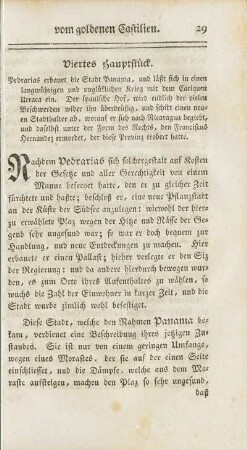 vom goldenen Castilien. 29
Viertes Hauptstück.
Pedrarias erbauet die Stadt Panama, und läßt sich in einen
langwührigen und unglüklichen Krieg mit dem Caziquen
Urraca ein. Der spanische Hof, wird endlich der vielen
Beschwerden wider ihn überdrüßig, und schikt einen neuen
Stadthalter ab, worauf er sich nach Nicaragua begiebt,
und daselbst unter der Form des Rechts, den Franciscus
Hernandez ermordet, der diese Provinz erobert hatte.
Nachdem Pedrarias sich solchergestalt auf Kosten
der Gesetze und aller Gerechtigkeit von einem
Manne befreyet hatte, den er zu gleicher Zeit
fürchtete und haßte; beschloß er, eine neue Pflanzstadt
an der Küste der Südsee anzulegen: wiewohl der hier
zu erwählte Plaz wegen der Hitze und Nässe der Ge-
gend sehr ungesund war; so war er doch bequem zur
Handlung, und neue Entdeckungen zu machen. Hier
erbauete er einen Pallast; hieher verlegte er den Siz
der Regierung: und da andere hierdurch bewogen wur-
den, es zum Orte ihres Aufenthaltes zu wählen, so
wuchs die Zahl der Einwohner in kurzer Zeit, und die
Stadt wurde zimlich wohl befestiget.
Diese Stadt, welche den Nahmen Panama be-
kam, verdienet eine Beschreibung ihres jetzigen Zu-
standes. Sie ist nur von einem geringen Umfange,
wegen eines Morastes, der sie auf der einen Seite
einschliesset, und die Dämpfe, welche aus dem Mo-
raste aufsteigen, machen den Plaz so sehr ungesund,
daß